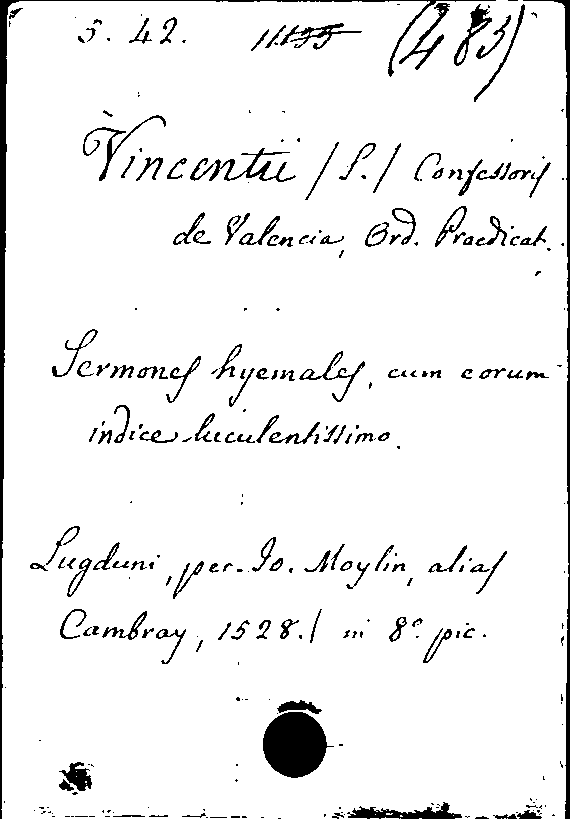 5. 42. (485)
Vincentii /S./ Confessoris
de Valencia, Ord. Praedicat.
Sermones hyemales, cum eorum
indice luculentissimo.
Lugduni, per Jo. Moylin, alias
Cambray, 1528./ in 8º. pic.